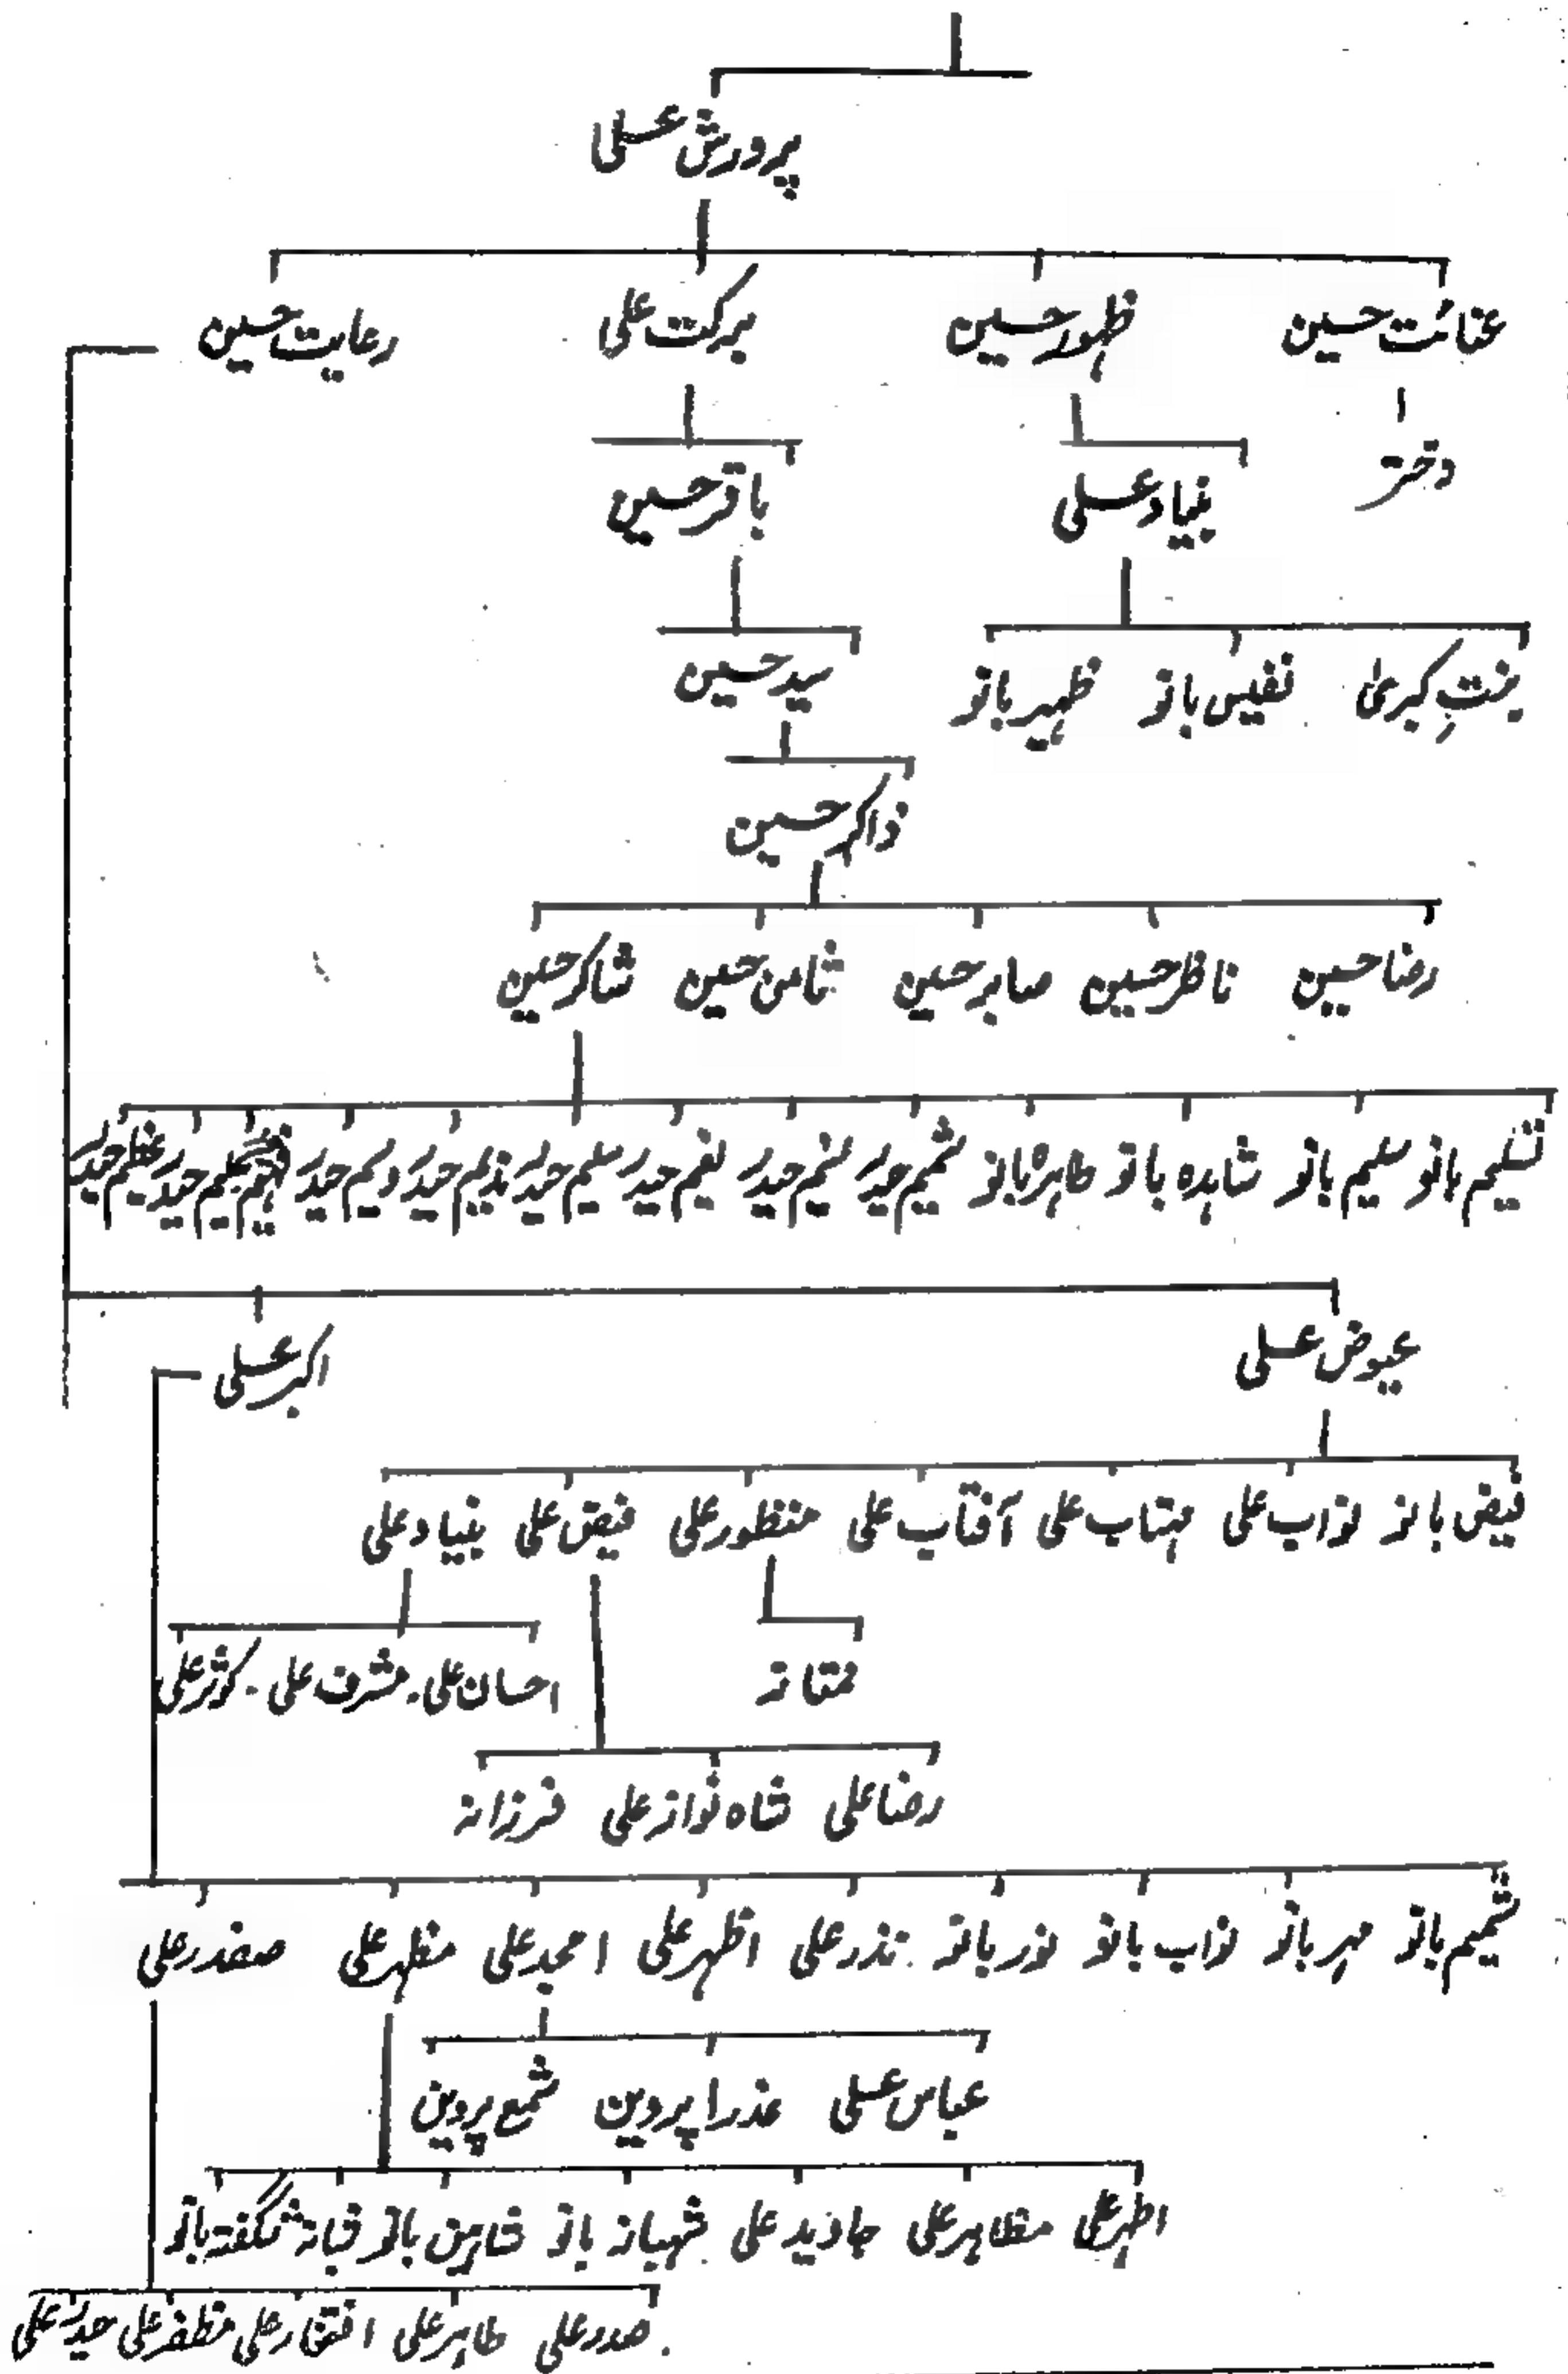 پرورش علی
عنائت حسین ظہور حسین برکت علی رعایت حسین
دختر
بنیاد علی باقر حسین
بنتِ کبریٰ نفیس بانو ظہیر بانو سید حسین
ذاکر حسین
رضا حسین ناظر حسین صابر حسین ثامن حسین شاکر حسین
تسلیم بانو سلیم بانو شاہدہ بانو طاہرہ بانو شمیم حیدر نسیم حیدر نعیم حیدر سلیم حیدر ندیم حیدر وسیم حیدر فہیم حیدر
عیوض علی اکبر علی
فیض بانو نواب علی مہتاب علی آفتاب علی منظور علی فیض علی بنیاد علی
ممتانہ احسان علی۔ مشرف علی۔ کوثر علی
رضا علی شاہ نواز علی فرزانہ
شمیم بانو مہر بانو نواب بانو نور بانو نذر علی اظہر علی امجد علی مظہر علی صفدر علی
عباس علی عذرا پروین شمع پروین
اطہر علی مظاہر علی جاوید علی شہناز بانو شاہین بانو شبانہ شگفتہ بانو
صدر علی طاہر علی افتخار علی مظفر علی حیدر علی